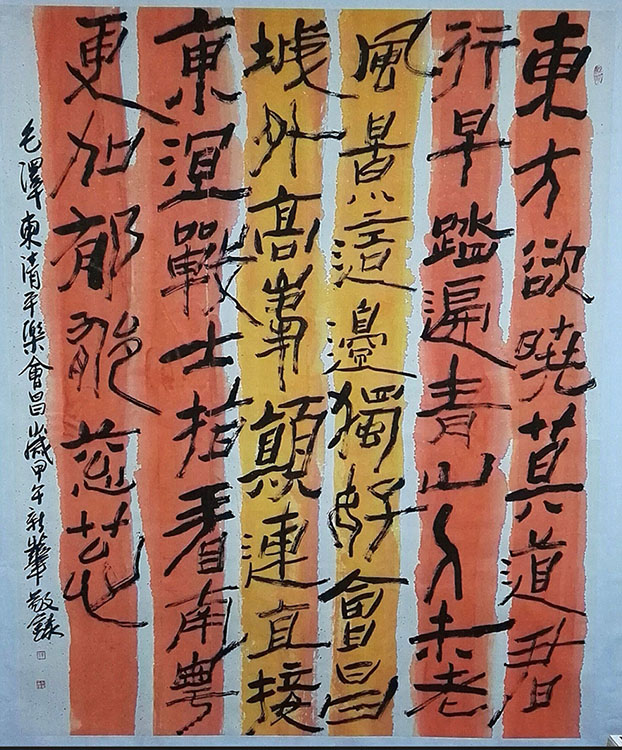 東方欲曉莫道君
行早踏遍青山人未老
風景這邊獨好會昌
城外高峯顛連直接
東溟戰士指看南粵
更加郁郁葱葱
毛澤東清平樂會昌歲甲午新華敬錄